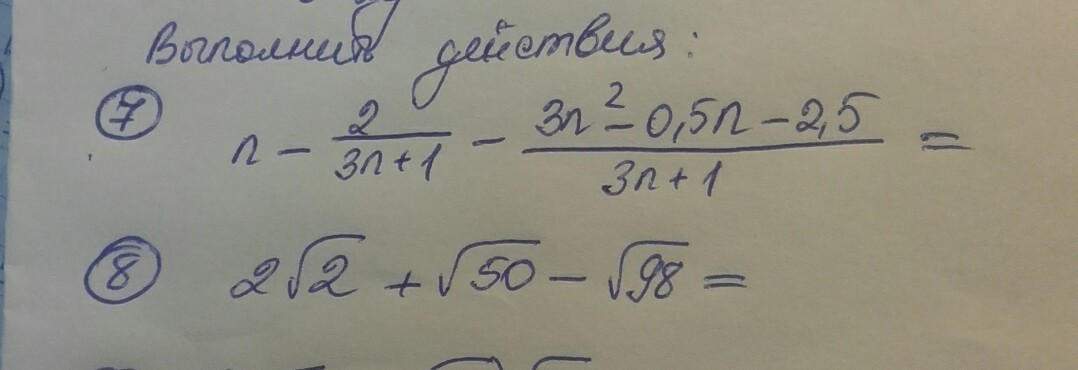 Выполнить действия:
⑦ n - 2/(3n+1) - (3n² - 0,5n - 2,5)/(3n+1) =
⑧ 2√2 + √50 - √98 =